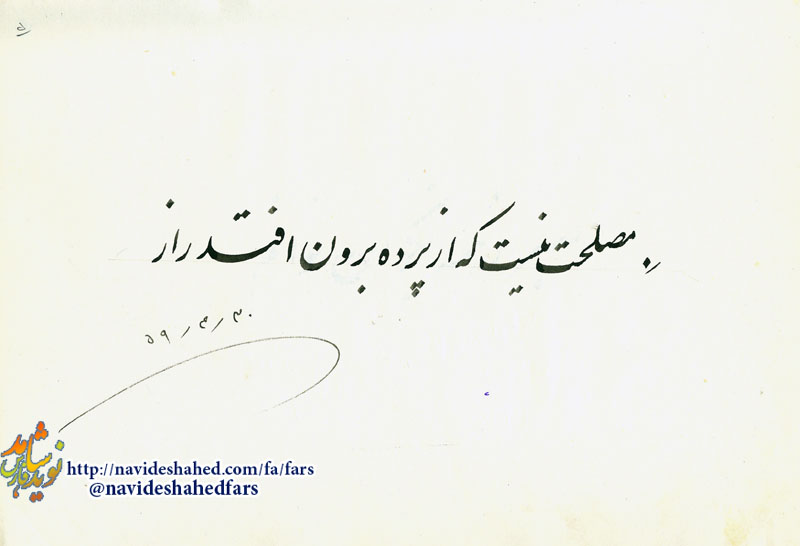 ۵
مصلحت نیست که از پرده برون افتد راز
۵۹/۳/۳۰
نوید شاهد
فارس
http://navideshahed.com/fa/fars
@navideshahedfars